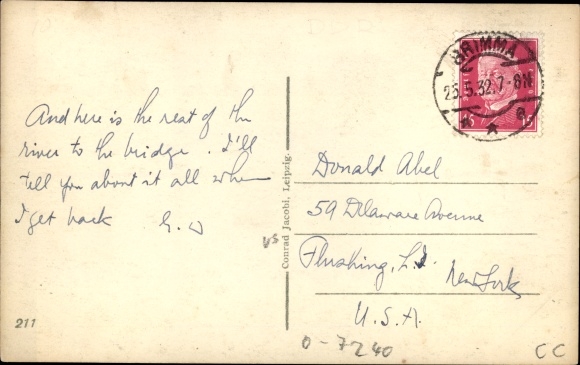 GRIMMA
25.5.32.7-8N
* * a
And here is the rest of the
river to the bridge. I'll
tell you about it all when
I get back
Donald Abel
59 Delaware Avenue
Flushing, L.I.
New York
U.S.A.
Conrad Jacobi, Leipzig.
211
0-7240
CC